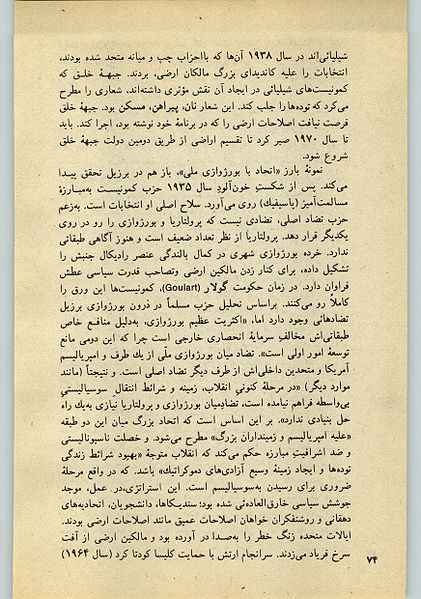 شیلیائی‌اند در سال ۱۹۳۸ آن‌ها که بااحزاب چپ و میانه متحد شده بودند،
انتخابات را علیه کاندیدای بزرگ مالکان ارضی، بردند. جبههٔ خلق که
کمونیست‌های شیلیائی در ایجاد آن نقش مؤثری داشته‌اند، شعاری را مطرح
می‌کرد که توده‌ها را جلب کند. این شعار نان، پیراهن، مسکن بود. جبههٔ خلق
فرصت نیافت اصلاحات ارضی را که در برنامهٔ خود نوشته بود، اجرا کند. باید
تا سال ۱۹۷۰ صبر کرد تا تقسیم اراضی از طریق دومین دولت جبههٔ خلق
شروع شود.
نمونهٔ بارز «اتحاد با بورژوازی ملی»، باز هم در برزیل تحقق پیدا
می‌کند. پس از شکستِ خون‌آلودِ سال ۱۹۳۵ حزب کمونیست به‌مبارزهٔ
مسالمت‌آمیز (پاسیفیک) روی می‌آورد. سلاح اصلی او انتخابات است. به‌زعم
حزب تضاد اصلی، تضادی نیست که پرولتاریا و بورژوازی را رو در روی
یکدیگر قرار دهد. پرولتاریا از نظر تعداد ضعیف است و هنوز آگاهی طبقاتی
ندارد. خرده بورژوازی شهری در کمال بالندگی عناصر رادیکال جنبش را
تشکیل داده، برای کنار زدن مالکین ارضی وتصاحب قدرت سیاسی عطش
فراوان دارد. در زمان حکومت گولار (Goulart)، کمونیست‌ها این ورق را
کاملاً رو می‌کنند. براساس تحلیل حزب مسلماً در درون بورژوازی برزیل
تضادهائی وجود دارد اما، «اکثریت عظیم بورژوازی، به‌دلیل منافع خاص
طبقاتی‌اش مخالفِ سرمایهٔ انحصاری خارجی است چرا که این دومی مانع
توسعهٔ امور اولی است». تضاد میان بورژوازی ملّی از یك طرف و امپریالیسم
آمریکا و متحدین داخلی‌اش از طرف دیگر تضاد اصلی است. و نتیجتاً (مانند
موارد دیگر) «در مرحلهٔ کنونیِ انقلاب، زمینه و شرائط انتقال سوسیالیستیِ
بی‌واسطه فراهم نیامده است، تضادمیان بورژوازی و پرولتاریا نیازی به‌یك راه
حل بنیادی ندارد». بر این اساس است که اتحاد بزرگ میان این دو طبقه
«علیه امپریالیسم و زمینداران بزرگ» مطرح می‌شود. و خصلت ناسیونالیستی
و ضد اشرافیتِ مبارزه حکم می‌کند که انقلاب متوجهٔ «بهبود شرائط زندگی
توده‌ها و ایجاد زمینهٔ وسیع آزادی‌های دموکراتیك» باشد. که در واقع مرحلهٔ
ضروری برای رسیدن به‌سوسیالیسم است. این استراتژی،در عمل، موجد
جوشش سیاسی خارق‌العاده‌ئی شده بود؛ سندیکاها، دانشجویان، اتحادیه‌های
دهقانی و روشنفکران خواهان اصلاحات عمیق مانند اصلاحات ارضی بودند.
ایالات متحده زنگ خطر را به‌صدا در آورده بود و مالکین ارضی از آفت
سرخ فریاد می‌زدند. سرانجام ارتش با حمایت کلیسا کودتا کرد (سال ۱۹۶۴)
۷۴